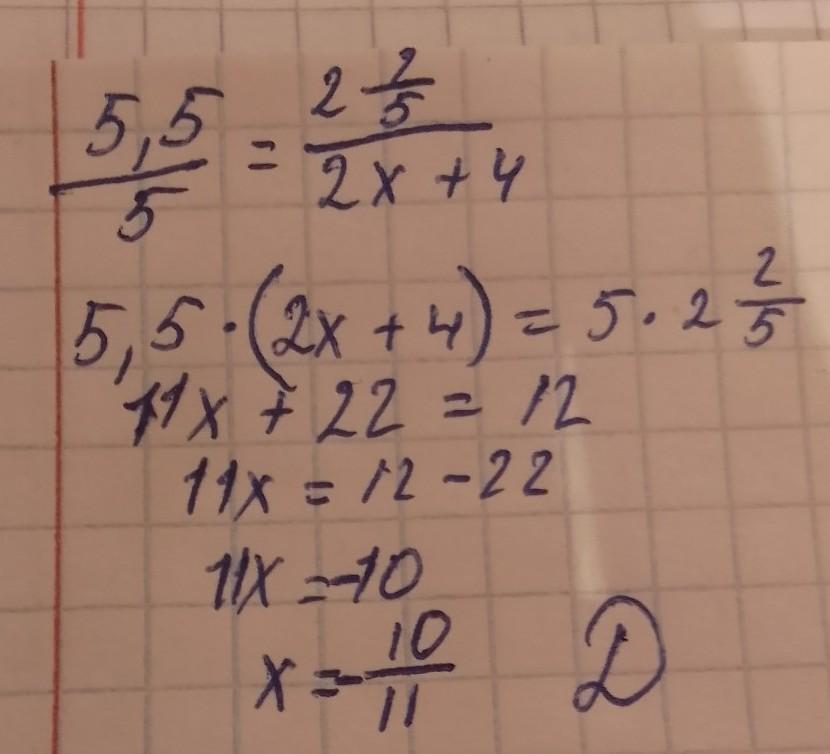 5,5/5 = 2 2/5 / 2x + 4
5,5 · (2x + 4) = 5 · 2 2/5
11x + 22 = 12
11x = 12 - 22
11x = -10
x = - 10/11 D